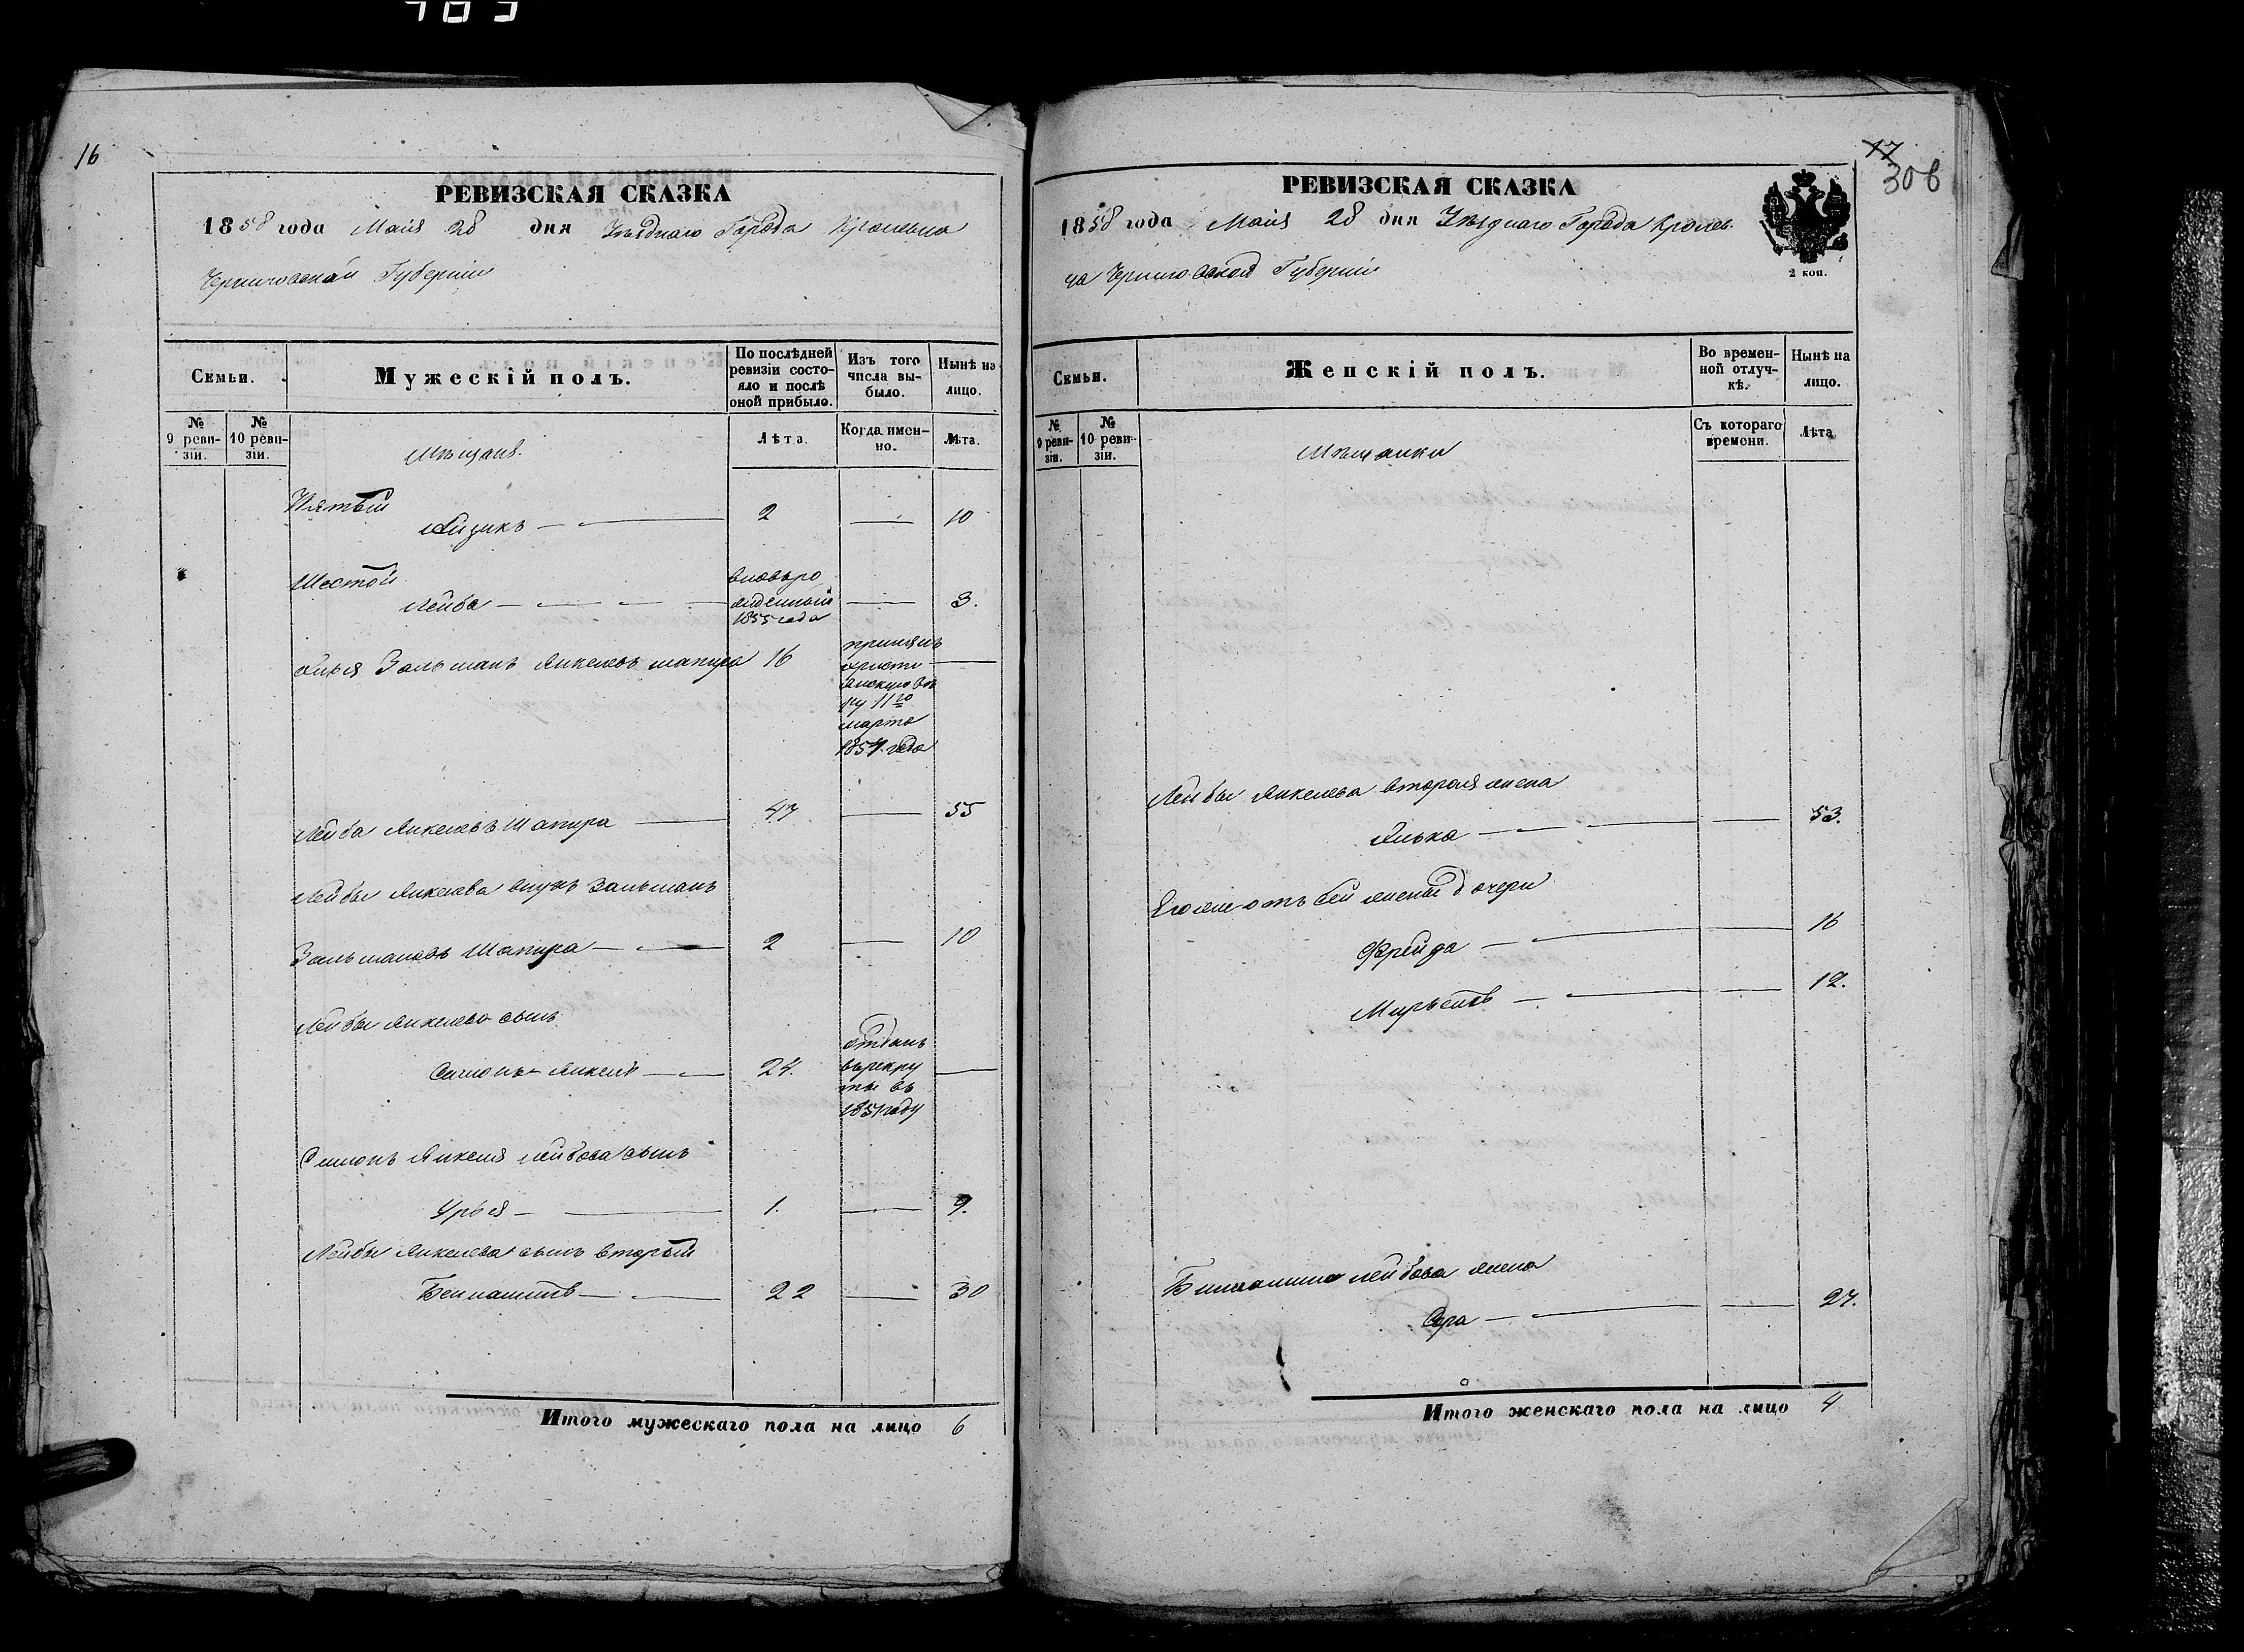 16
РЕВИЗСКАЯ СКАЗКА
1858 года Маія 28 дня Уѣзднаго Города Кролевца
Черниговской Губерніи
Семьи.
Мужескій полъ.
По послѣдней ревизіи состояло и послѣ оной прибыло.
Изъ того числа выбыло.
Нынѣ на лицо.
№ 9 ревизіи.
№ 10 ревизіи.
Мѣщанѣ.
Лѣта.
Когда именно.
Лѣта.
Пятый
Айзикъ 2 — 10
Шестой
Лейба вновьрожденный 1855 года — 3.
Залманъ Янкелевъ Шапира 16 принялъ христіянскую вѣру 11го марта года —
Лейба Янкелевъ Шапира 47 — 55
Лейбы Янкелева внукъ Зальманъ
Зальмановъ Шапира 2 — 10
Лейбы Янкелева сынъ
Симонъ-Янкель 24. отданъ врекруты въ 1851 году —
Симонъ Янкеля Лейбова сынъ
Урыя 1. — 9.
Лейбы Янкелева сынъ вторый
Беніаминъ 22 — 30
Итого мужескаго пола на лицо 6
17
306
РЕВИЗСКАЯ СКАЗКА
1858 года Маія 28 дня Уѣзднаго Города Кролев-
ца Черниговской Губерніи
2 коп.
Семьи.
Женскій полъ.
Во временной отлучкѣ.
Нынѣ на лицо.
№ 9 ревизіи.
№ 10 ревизіи.
Мѣщанки
Съ котораго времени.
Лѣта
Лейбы Янкелева вторая жена
— 53.
Его же отъ сей жены дочери
Фрейда — 16
— 12.
Беніамина Лейбова жена
Сора — 27.
Итого женскаго пола на лицо 4